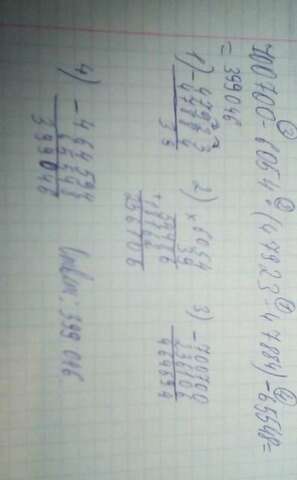 700700 - 6054 · (47923 - 47884) - 65548 =
= 399046
1) - 47923
47884
39
2) × 6054
39
54486
+ 18162
236106
3) - 700700
236106
464594
4) - 464594
65548
399046
Ответ: 399046